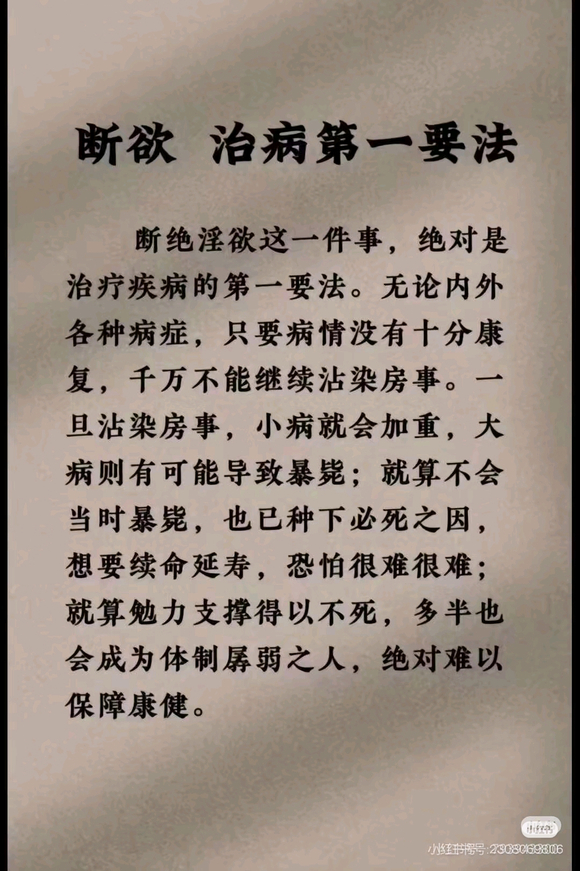 断欲 治病第一要法
断绝淫欲这一件事，绝对是
治疗疾病的第一要法。无论内外
各种病症，只要病情没有十分康
复，千万不能继续沾染房事。一
旦沾染房事，小病就会加重，大
病则有可能导致暴毙；就算不会
当时暴毙，也已种下必死之因，
想要续命延寿，恐怕很难很难；
就算勉力支撑得以不死，多半也
会成为体制孱弱之人，绝对难以
保障康健。
小红书